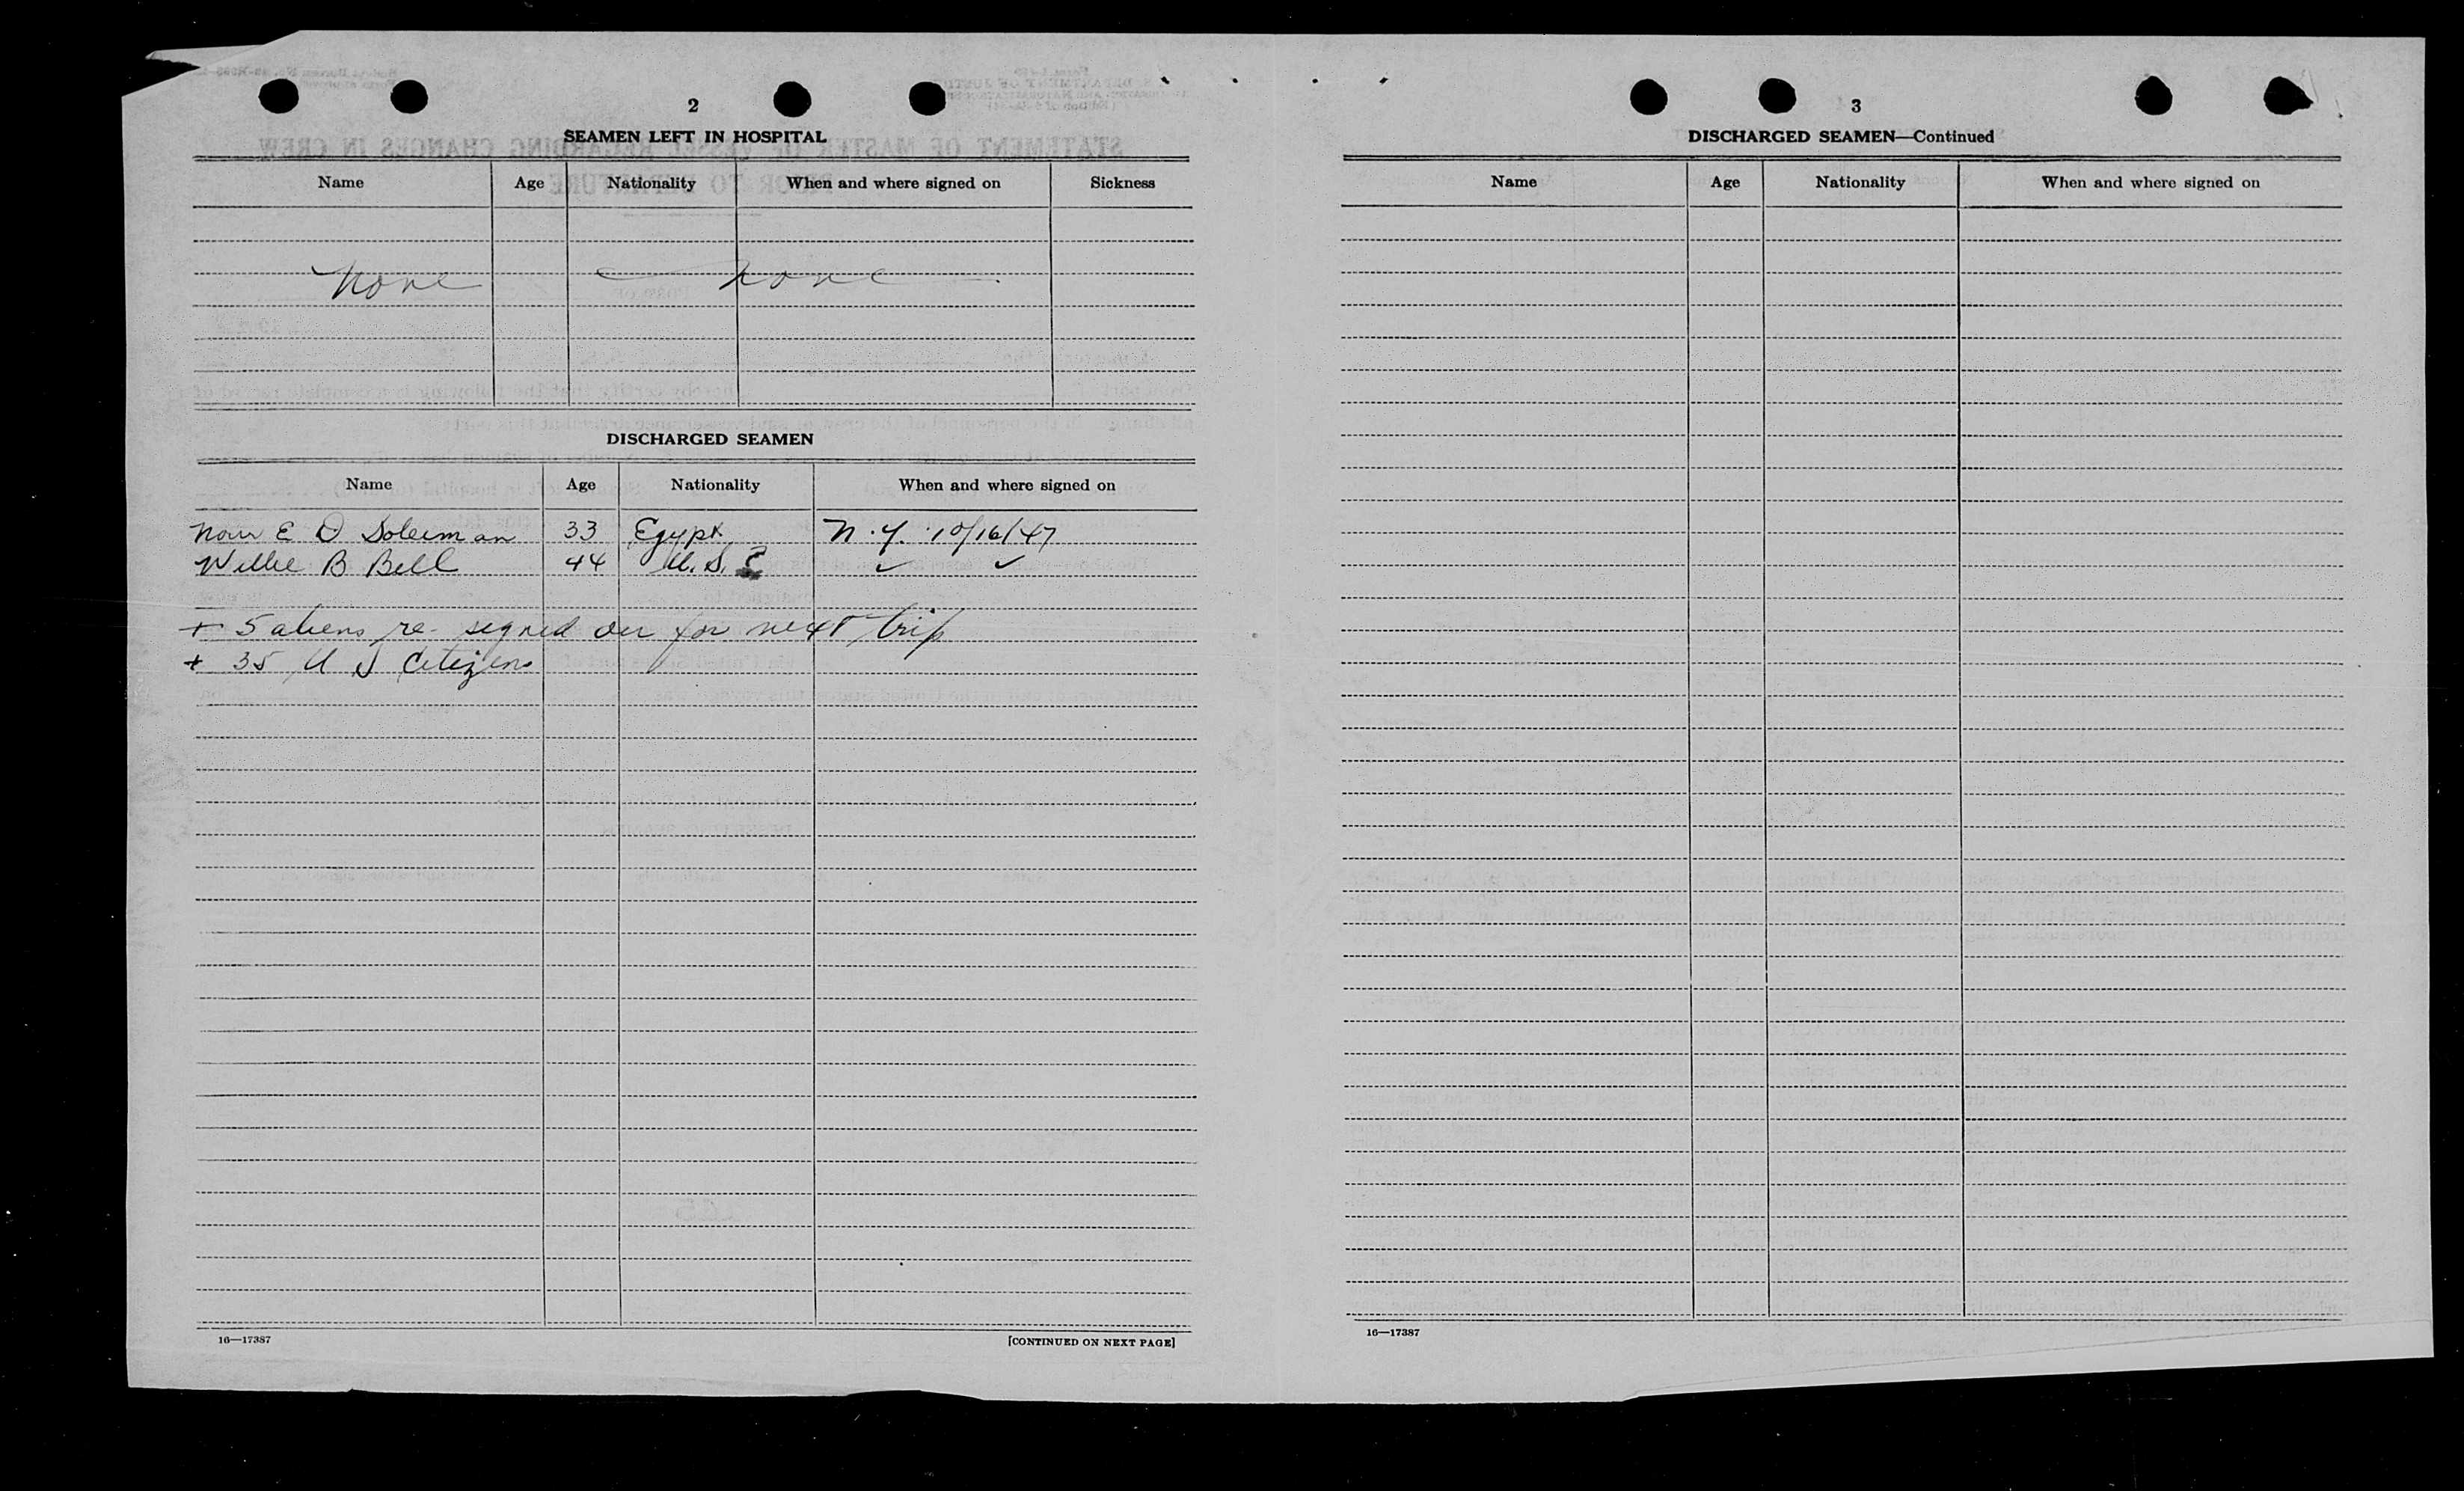 2
SEAMEN LEFT IN HOSPITAL
Name Age Nationality When and where signed on Sickness
None None
DISCHARGED SEAMEN
Name Age Nationality When and where signed on
Nour E D Soleiman 33 Egypt N.Y. 10/16/47
Willie B Bell 44 U.S. ✓ ✓
+ 5 aliens re-signed on for next trip
+ 35 U S Citizens
16—17387
[CONTINUED ON NEXT PAGE]
3
DISCHARGED SEAMEN—Continued
Name Age Nationality When and where signed on
16—17387